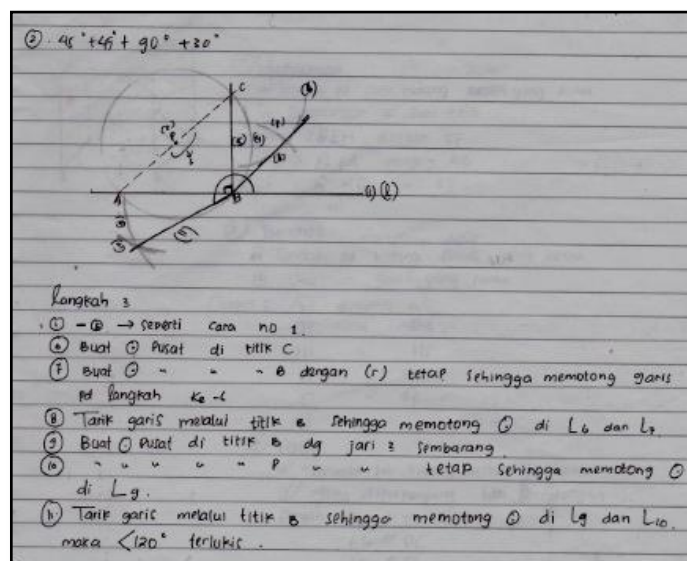 ② 45° + 45° + 90° + 30°
C
A
B
Langkah 2
① - ⑤ → seperti cara no 1.
⑥ Buat ⊙ Pusat di titik C
⑦ Buat ⊙ " " " B dengan (r) tetap sehingga memotong garis
pd langkah ke -6
⑧ Tarik garis melalui titik B sehingga memotong ⊙ di L6 dan L7
⑨ Buat ⊙ Pusat di titik B dg jari 2 sembarang
⑩ " " " " " P " " tetap sehingga memotong ⊙
di L9.
⑪ Tarik garis melalui titik B sehingga memotong ⊙ di L9 dan L10.
maka <120° terlukis.